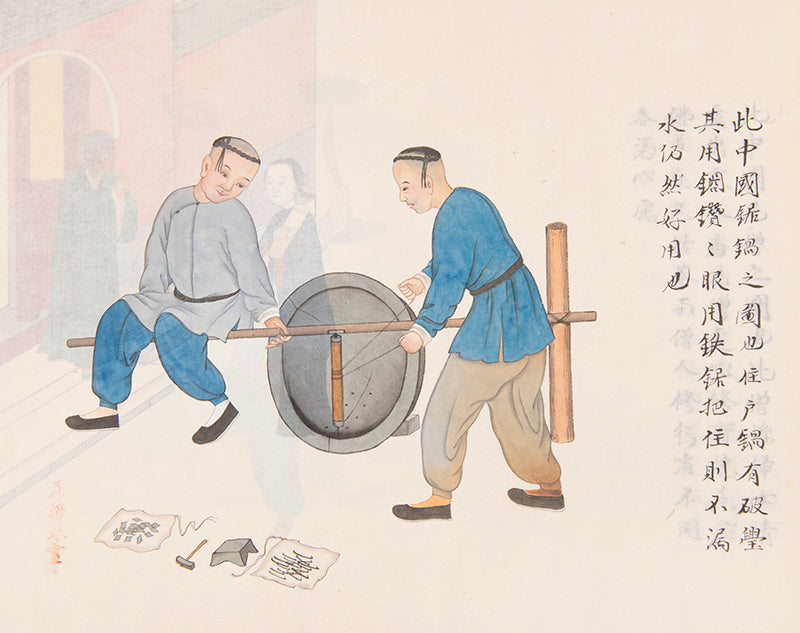 此中國鋸鍋之圖也住户鍋有破璺
其用鋼鑽〻眼用鉄鋸把住則不漏
水仍然好用也
周培春畫